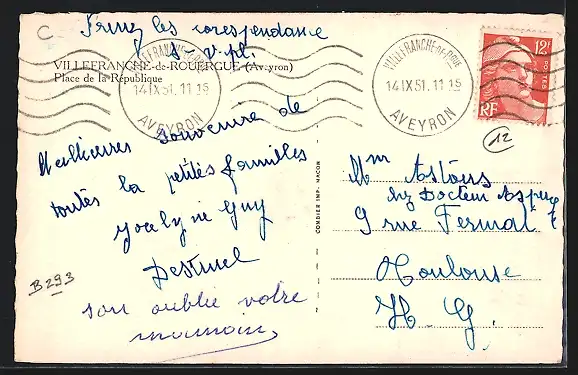 C
Fermez les corespondance
s-v.pl.
VILLEFRANCHE-de-ROUERGUE (Aveyron)
Place de la République
VILLEFRANCHE-DE-RGUE
14 IX 51. 11 15
AVEYRON
VILLEFRANCHE-DE-RGUE
14 IX 51. 11 15
AVEYRON
12F
RF
12
Meilleures souvenire de
toutes la petites familles
Jocelyne Guy
son oublie votre
B293
COMBIER IMP. MACON
Mm Astous
chez Docteur
9 rue Fermat
Toulouse
H. G.